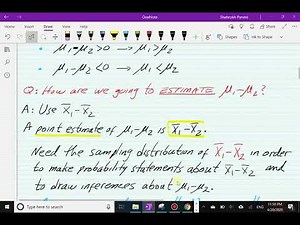 OneNote
• μ₁-μ₂>0 → μ₁>μ₂
• μ₁-μ₂<0 → μ₁<μ₂
Q: How are we going to ESTIMATE μ₁-μ₂?
A: Use X̄₁-X̄₂
A point estimate of μ₁-μ₂ is X̄₁-X̄₂.
Need the sampling distribution of X̄₁-X̄₂ in order
to make probability statements about X̄₁-X̄₂ and
to draw inferences about μ₁-μ₂.